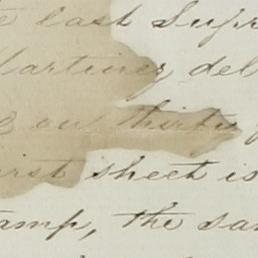 e last Supr
Martinez del
g on thirty
irst sheet is
tamp, the sa